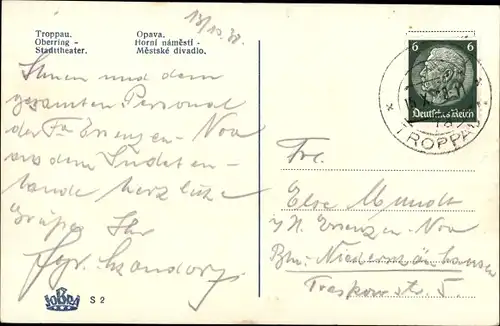 Troppau.
Oberring -
Stadttheater.
Opava.
Horní náměstí -
Městské divadlo.
13/10.38
Ihnen und dem
gesamten Personal
der Fa Essenzen-Nova
aus dem Sudeten-
lande herzliche
Grüße Ihr
6 6
Deutsches Reich
TROPPAU
Frl.
Else Mundt
i/H. Essenzen-Nova
Bln. Niederschönhausen
Treskowstr. 5.
JOBRA
S 2